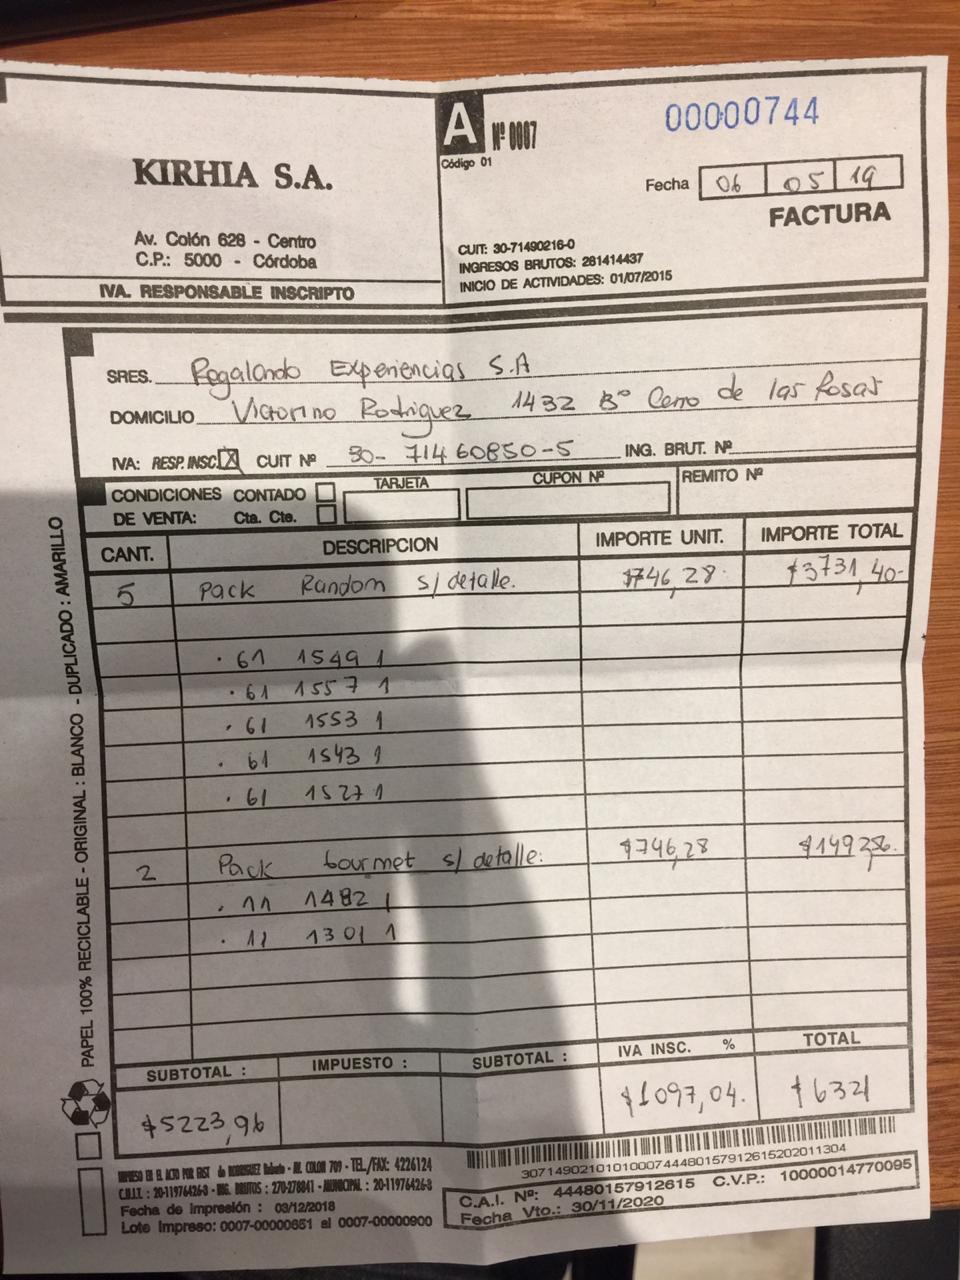 A Nº 0007 00000744
Código 01
KIRHIA S.A.
Fecha 06 05 19
FACTURA
Av. Colón 628 - Centro
C.P.: 5000 - Córdoba
CUIT: 30-71490216-0
INGRESOS BRUTOS: 281414437
INICIO DE ACTIVIDADES: 01/07/2015
IVA. RESPONSABLE INSCRIPTO
SRES. Regalando Experiencias S.A
DOMICILIO Victorino Rodriguez 1432 Bº Cerro de las Rosas
IVA: RESP. INSC. X CUIT Nº 30-71460850-5 ING. BRUT. Nº
CONDICIONES CONTADO TARJETA CUPON Nº REMITO Nº
DE VENTA: Cta. Cte.
CANT. DESCRIPCION IMPORTE UNIT. IMPORTE TOTAL
5 Pack Random s/detalle. $746,28- $3731,40-
. 61 1549 1
. 61 1557 1
. 61 1553 1
. 61 1543 1
. 61 1527 1
2 Pack Gourmet s/detalle: $746,28 $1492,56.
. 11 1482 1
. 11 1301 1
SUBTOTAL : IMPUESTO : SUBTOTAL : IVA INSC. % TOTAL
$5223,96 $1097,04. $6321
PAPEL 100% RECICLABLE - ORIGINAL : BLANCO - DUPLICADO : AMARILLO
IMPRESO EN EL ACTO POR FAST de RODRIGUEZ Roberto - AV. COLON 709 - TEL./FAX: 4226124
C.U.I.T. : 20-11976426-3 - ING. BRUTOS : 270-27884-1 - MUNICIPAL : 20-11976426-3
Fecha de Impresión : 03/12/2018
Lote Impreso: 0007-00000651 al 0007-00000900
3071490210101000744480157912615202011304
C.A.I. Nº: 44480157912615 C.V.P.: 10000014770095
Fecha Vto.: 30/11/2020